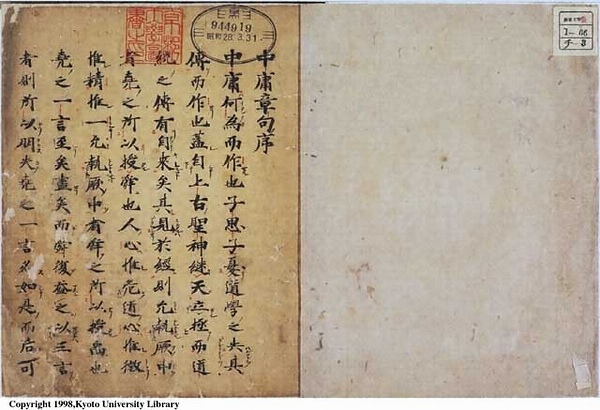 中庸章句序
中庸何為而作也子思子憂道學之失其
傳而作也蓋自上古聖神繼天立極而道
統之傳有自來矣其見於經則允執厥中
者堯之所以授舜也人心惟危道心惟微
惟精惟一允執厥中者舜之所以授禹也
堯之一言至矣盡矣而舜復益之以三言
者則所以明夫堯之一言必如是而后可
944919
昭和28.3.31
1-66
チ-3
Copyright 1998,Kyoto University Library